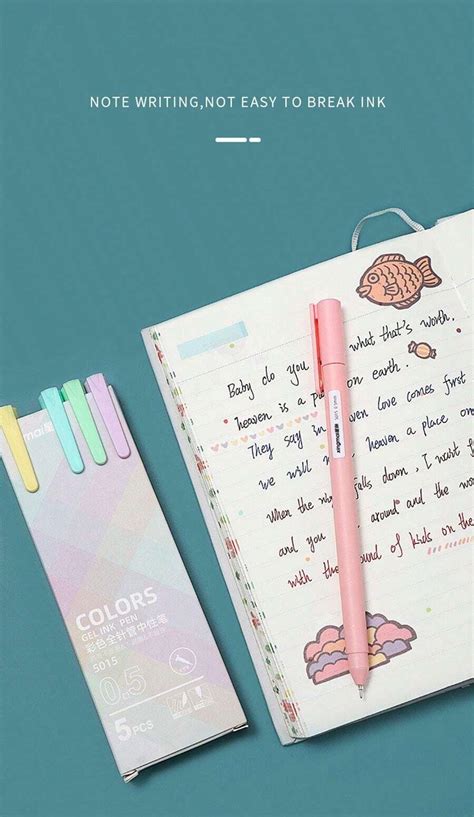 NOTE WRITING,NOT EASY TO BREAK INK
Baby do you what that's worth.
heaven is a on earth.
They say in love comes first
we will heaven a place on
When the falls down, I want
and you around and the
with the of kids on the
COLORS
GEL INK PEN
彩色全针管中性笔
5015
0.5
5PCS